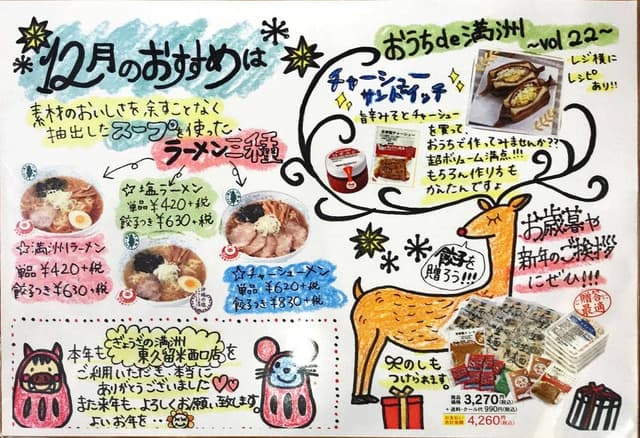 12月のおすすめは
素材のおいしさを余すことなく
抽出したスープを使った、
ラーメン三種
☆塩ラーメン
単品¥420+税
餃子つき¥630+税
☆満洲ラーメン
単品¥420+税
餃子つき¥630+税
☆チャーシューメン
単品¥620+税
餃子つき¥830+税
おうちde満洲
~vol 22~
チャーシュー
サンドイッチ
レジ横に
レシピ
あり!!
旨辛みそとチャーシュー
を買って
おうちで作ってみませんか??
超ボリューム満点!!!
もちろん作り方も
かんたんですよ
餃子を
贈ろう!!!
お歳暮や
新年のご挨拶
にぜひ!!!
ご贈答に
最適
のしも
つけられます。
商品価格 3,270円(税込)
+送料・クール代 990円(税込)
お支払い合計金額 4,260円(税込)
本年もぎょうざの満洲
東久留米西口店を
ご利用いただき、本当に
ありがとうございました
また来年も、よろしくお願い致します。
よいお年を…